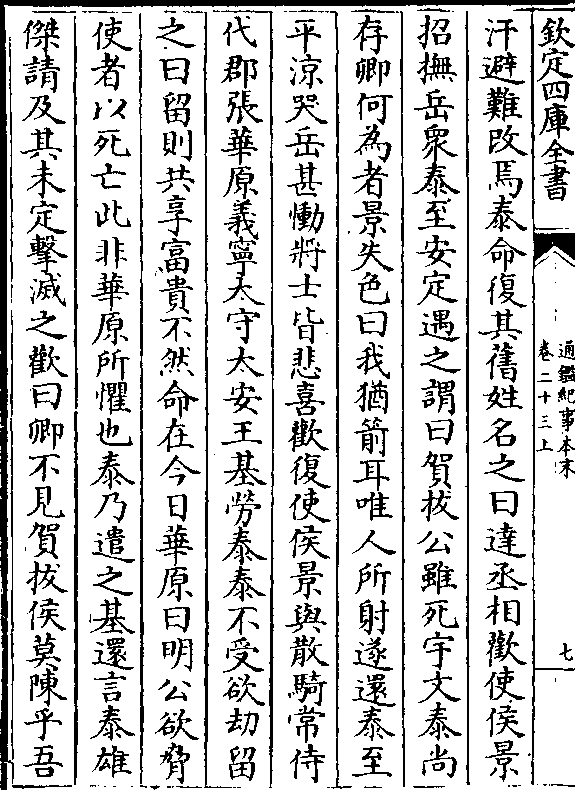 欽定四庫全書
通鑑紀事本末
卷二十三上
七
汗避難改焉泰命復其舊姓名之曰達丞相歡使侯景
招撫岳衆泰至安定遇之謂曰賀拔公雖死宇文泰尚
存卿何為者景失色曰我猶箭耳唯人所射遂還泰至
平涼哭岳甚慟將士皆悲喜歡復使侯景與散騎常侍
代郡張華原義寧太守太安王基勞泰泰不受欲刼留
之曰留則共享富貴不然命在今日華原曰明公欲脅
使者以死亡此非華原所懼也泰乃遣之基還言泰雄
傑請及其未定擊滅之歡曰卿不見賀拔侯莫陳乎吾